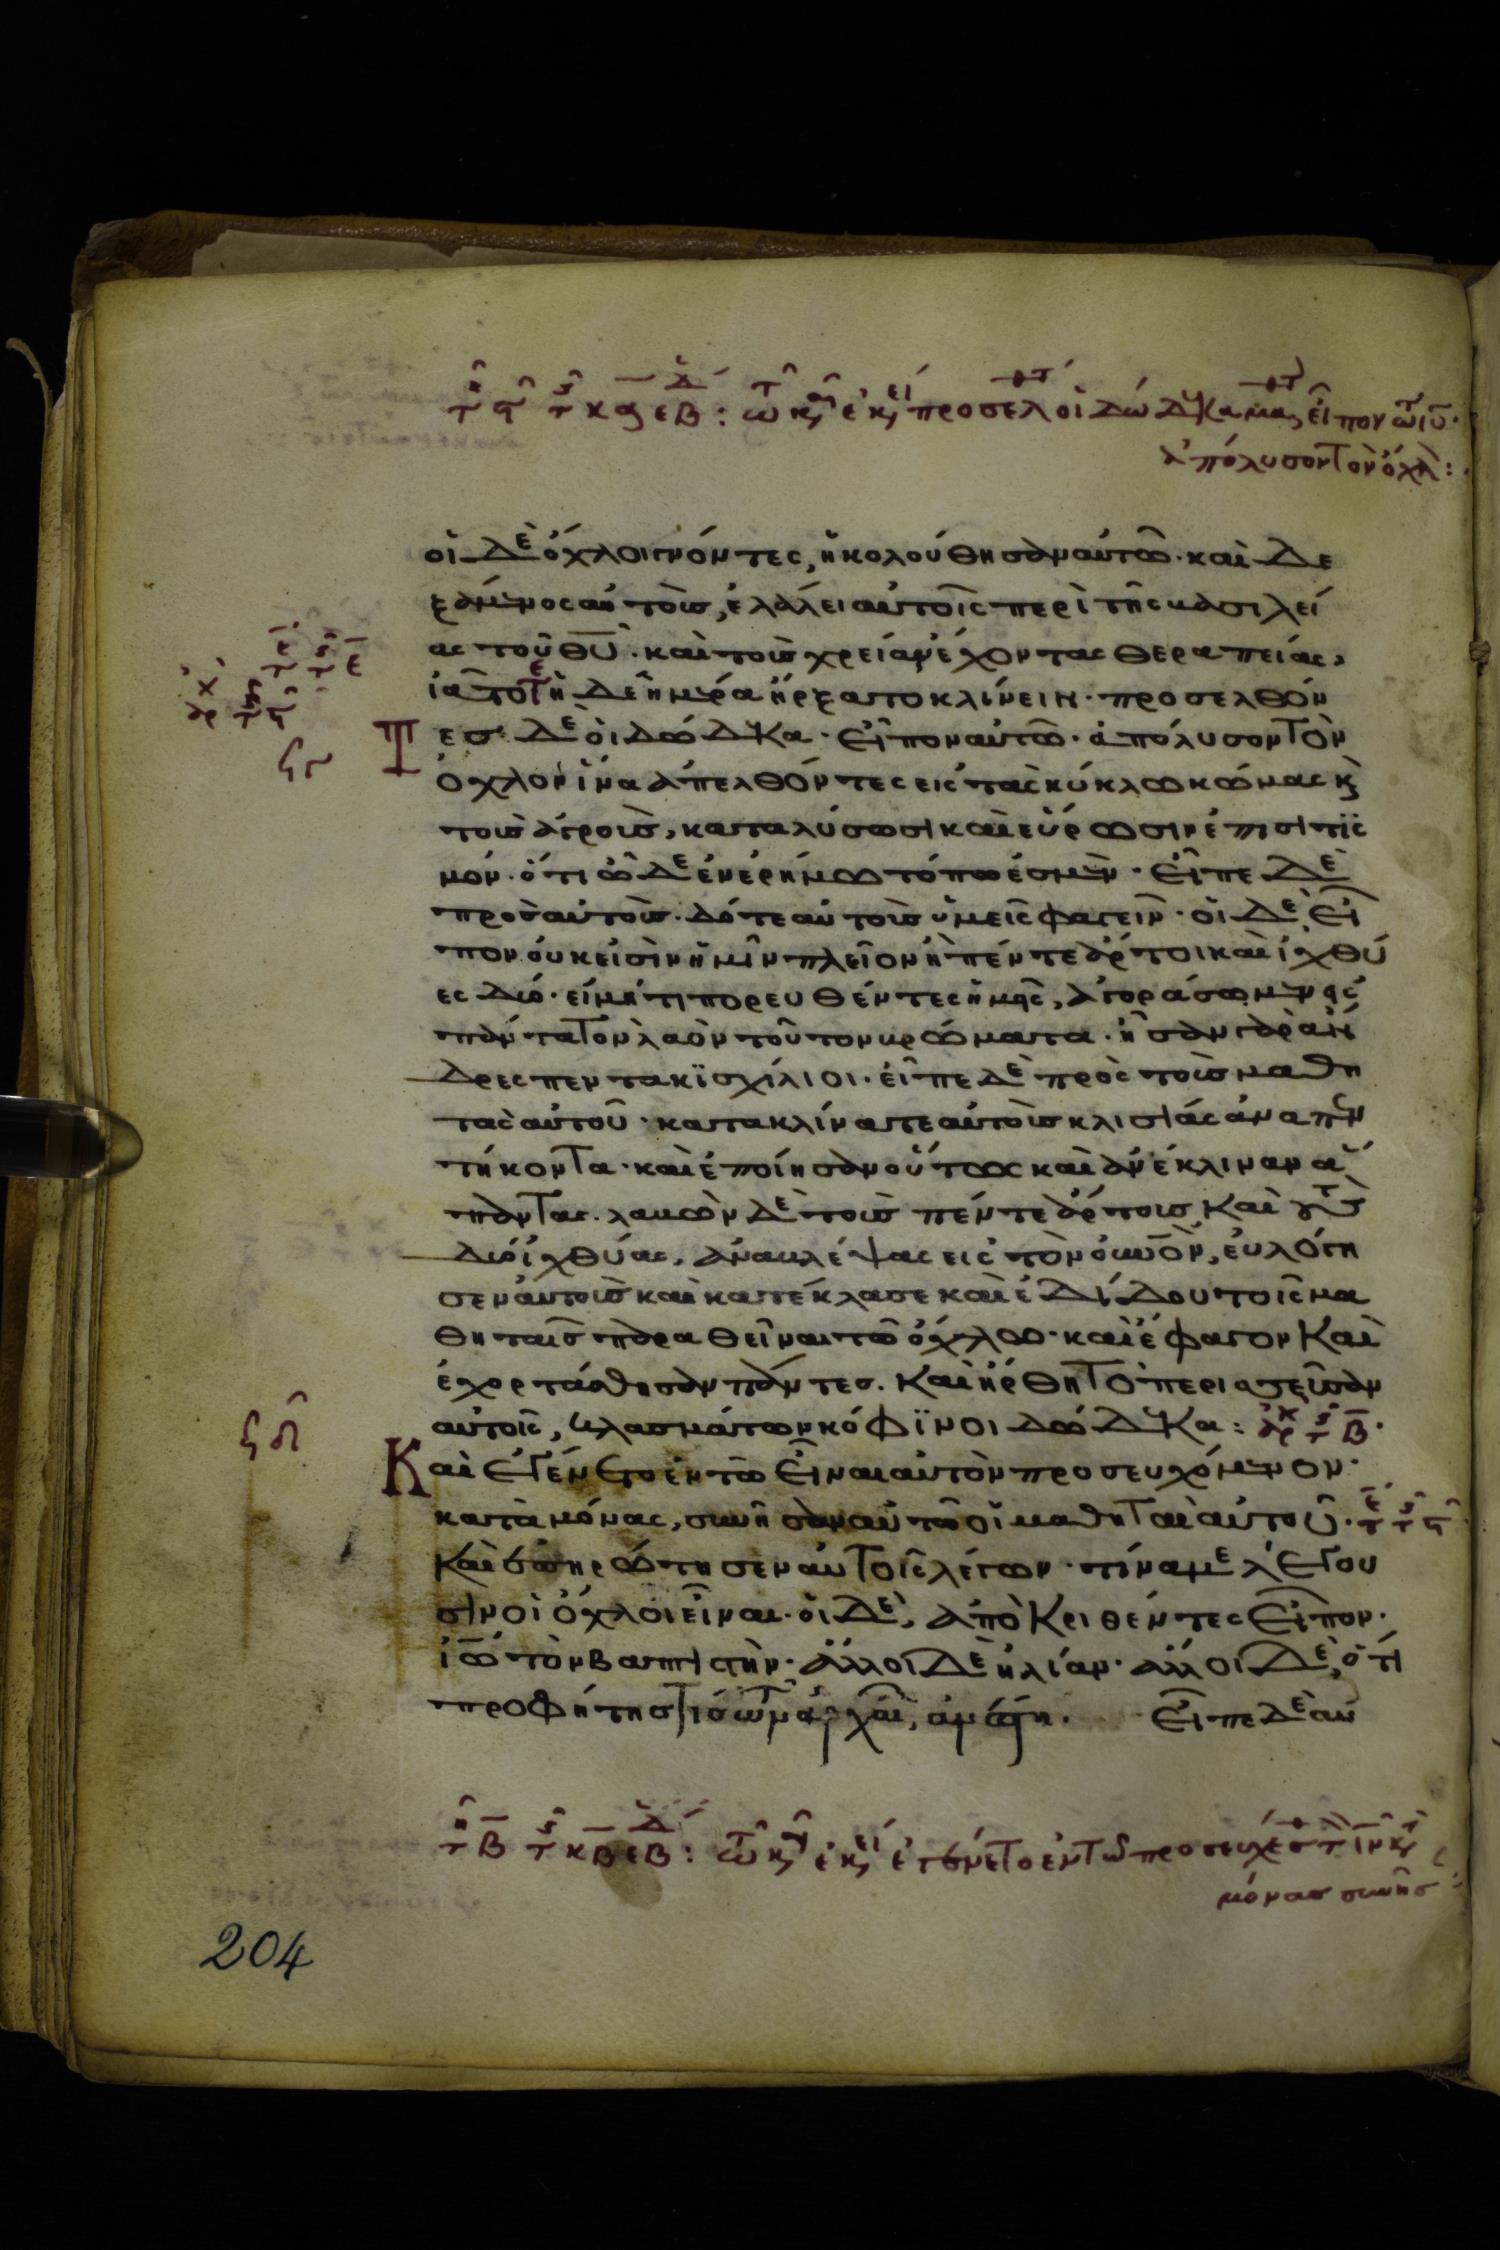 οἱ δὲ ὄχλοι γνόντες, ἠκολούθησαν αὐτῶ· καὶ δε
ξάμενος αὐτοὺς, ἐλάλει αὐτοῖς περὶ τῆς βασιλεί
ας τοῦ θυ̅· καὶ τοὺς χρείαν ἔχοντας θεραπείας,
ἰᾶτο
ἡ δὲ ἡμέρα ἤρξατο κλίνειν· προσελθόν
Τ
ες δὲ οἱ δώδεκα· εἶπον αὐτῶ· ἀπόλυσον τὸν
ὄχλον ἵνα ἀπελθόντες εἰς τὰς κύκλω κώμας κ̀
τοὺς ἀγροὺς, καταλύσωσι καὶ εὕρωσιν ἐπισιτϊσ
μόν· ὅτι ὧδε ἐν ἐρήμω τόπω ἐσμέν· εἶπε δὲ
πρὸς αὐτούς· δότε αὐτοῖς ὑμεῖς φαγεῖν· οἱ δὲ εἶ
πον οὐκ εἰσὶν ἡμῖν πλεῖον ἢ πέντε ἄρτοι καὶ ἰχθύ
ες δύο· εἰ μή τι πορευθέντες ἡμεῖς, ἀγοράσωμεν εἰς
πάντα τὸν λαὸν τοῦτον βρώματα· ἦσαν γὰρ ἄν
δρες πεντακϊσχίλιοι· εἶπε δὲ πρὸς τοὺς μαθη
τὰς αὐτοῦ· κατακλίνατε αὐτοὺς κλισίας ἀνὰ πεν
τήκοντα· καὶ ἐποίησαν οὕτως καὶ ἀνέκλιναν ἅ
παντας. λαβὼν δὲ τοὺς πέντε ἄρτους καὶ τοὺς
δύο ἰχθύας, ἀναβλέψας εἰς τὸν οὐνο̅ν, εὐλόγη
σεν αὐτοὺς καὶ κατέκλασε καὶ ἐδίδου τοῖς μα
θηταῖς παραθεῖναι τῶ ὄχλω· καὶ ἔφαγον καὶ
ἐχορτάσθησαν πάντες. καὶ ἤρθη τὸ περισσεῦσαν
αὐτοῖς, κλασμάτων κόφϊνοι δώδεκα:
Κ
αὶ ἐγένετο ἐν τῶ εἶναι αὐτὸν προσευχόμενον·
κατὰ μόνας, συνῆσαν αὐτῶ οἱ μαθηταὶ αὐτοῦ·
καὶ ἐπηρώτησεν αὐτοῖς λέγων· τίνα με λέγου
σιν οἱ ὄχλοι εἶναι· οἱ δὲ, ἀποκριθέντες εἶπον·
ἰω̅ τὸν βαπτιστήν· ἄλλοι δὲ ἠλίαν· ἄλλοι δὲ, ὅτι
προφήτης τὶς τῶν ἀρχαί, ἀνέστη· εἶπε δὲ αὐ
204